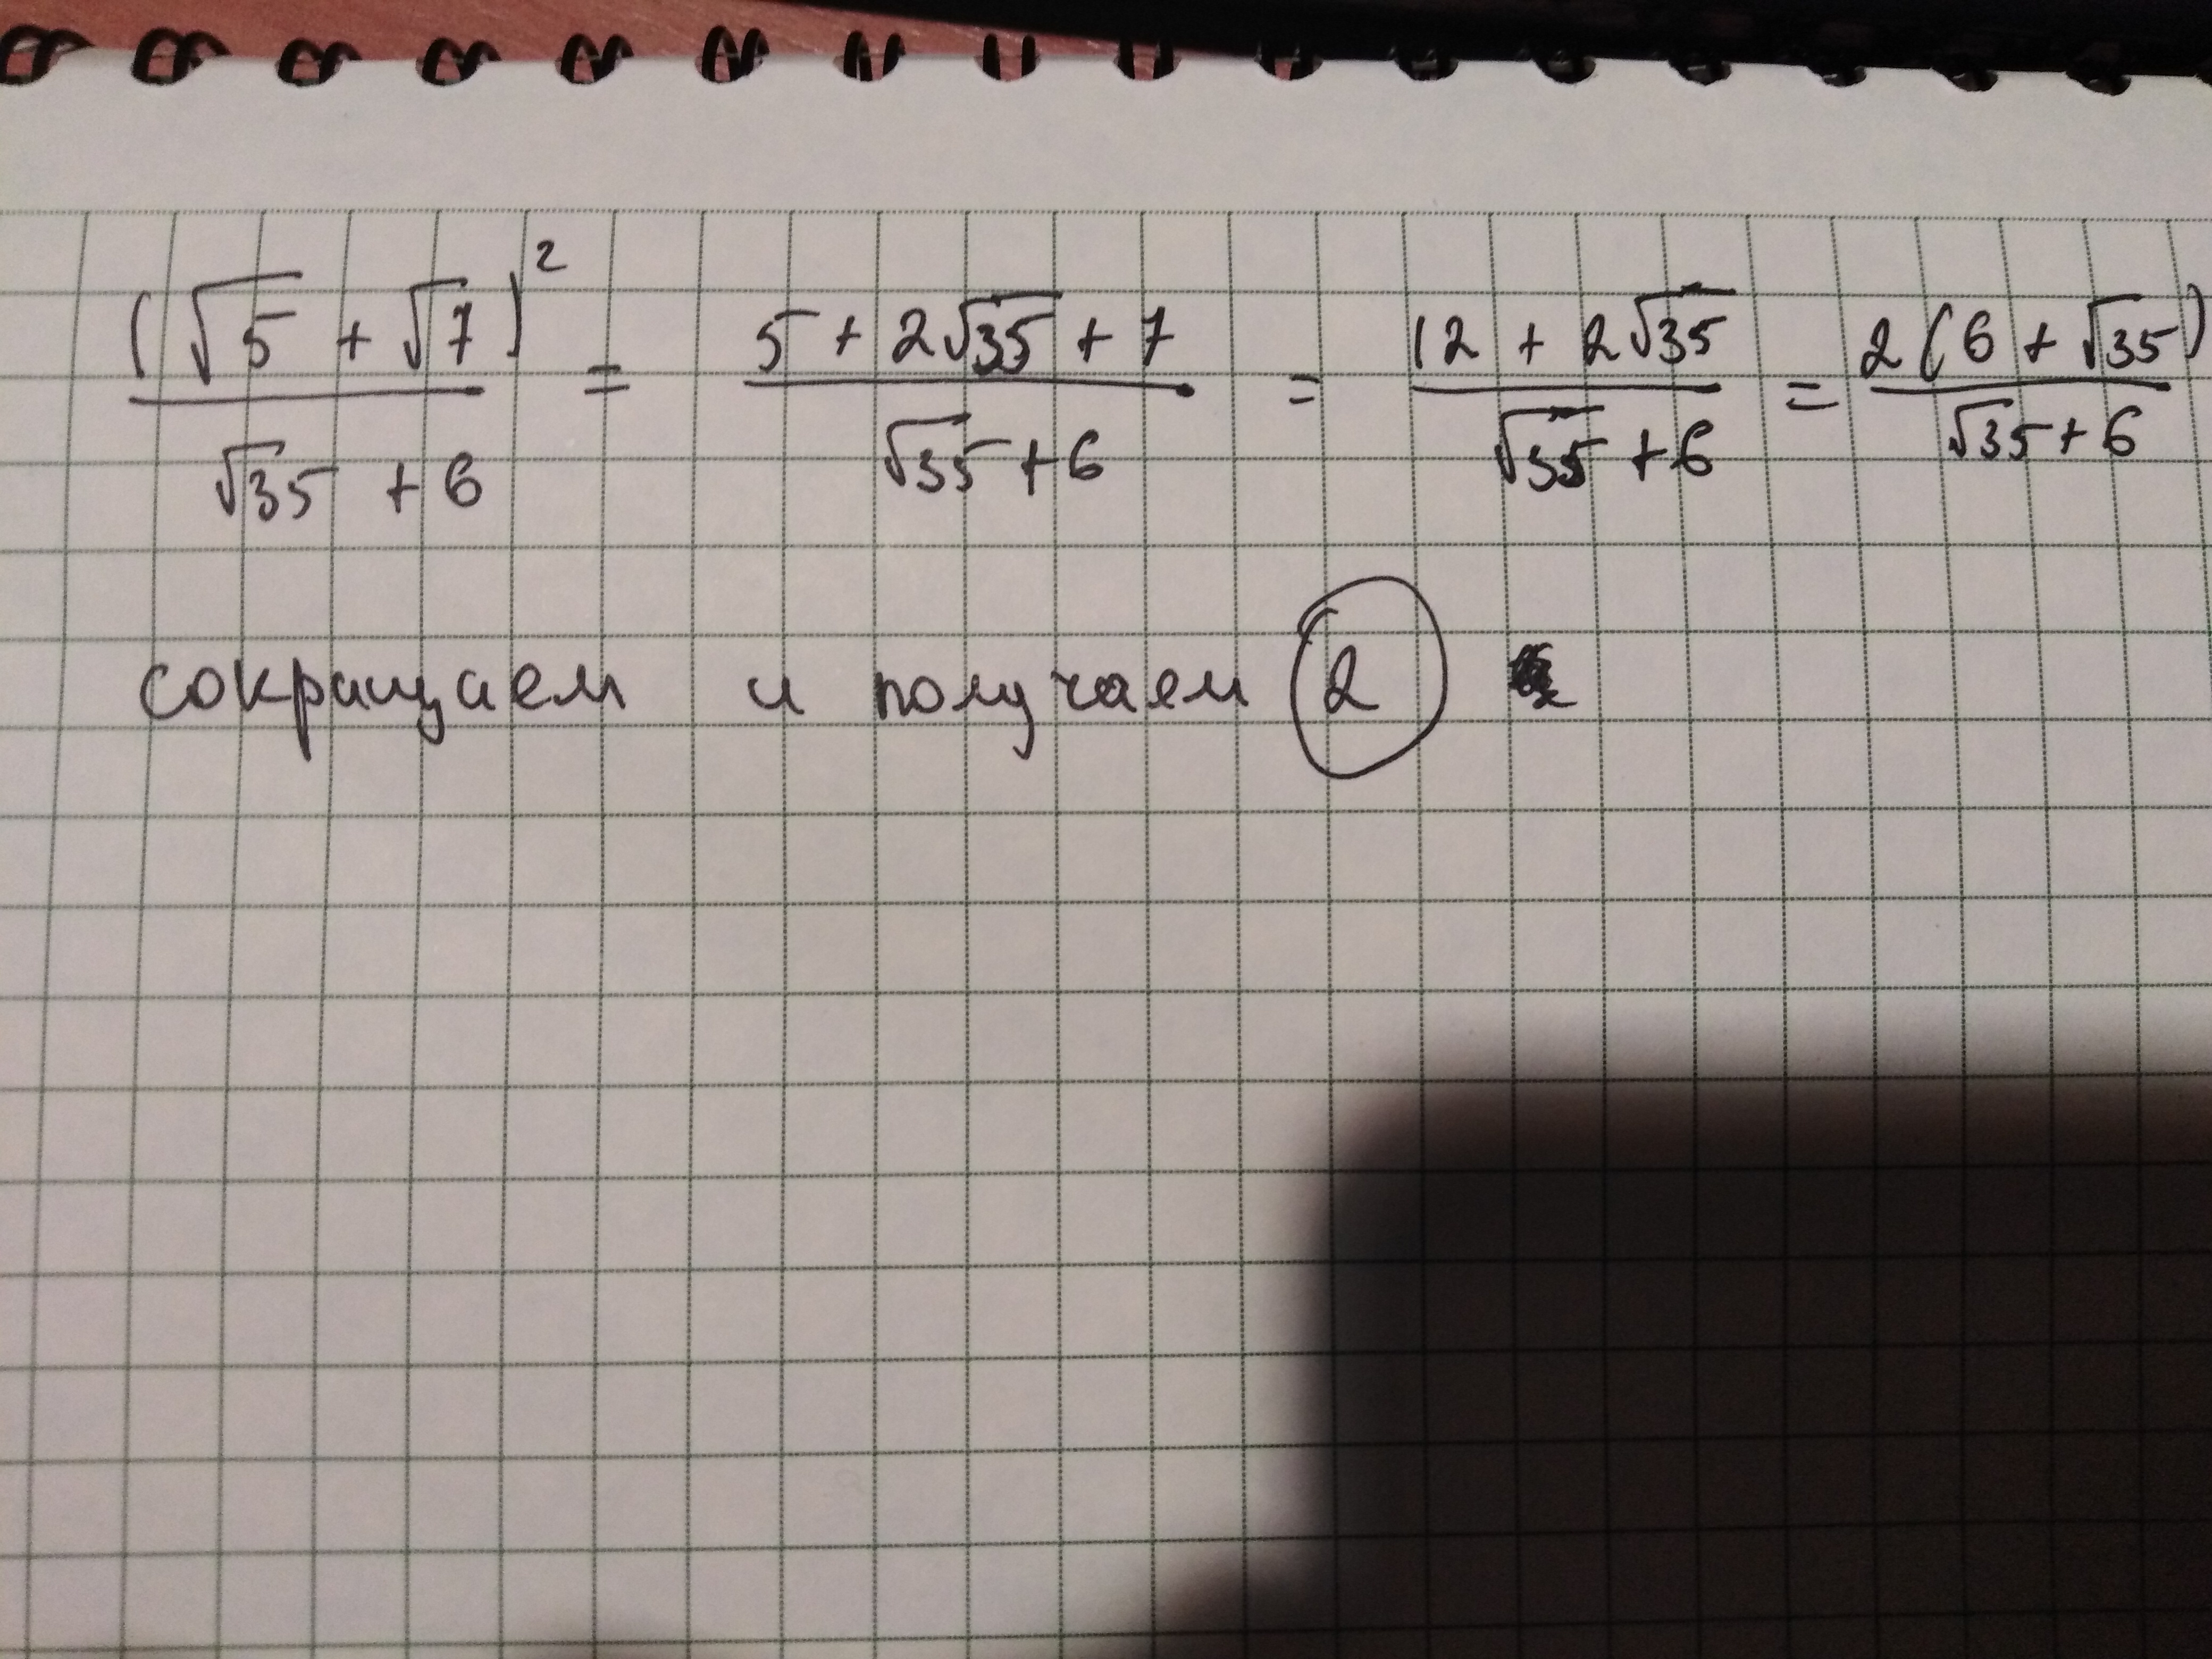 (√5 + √7)² / (√35 + 6) = (5 + 2√35 + 7) / (√35 + 6) = (12 + 2√35) / (√35 + 6) = 2(6 + √35) / (√35 + 6)
сокращаем и получаем 2